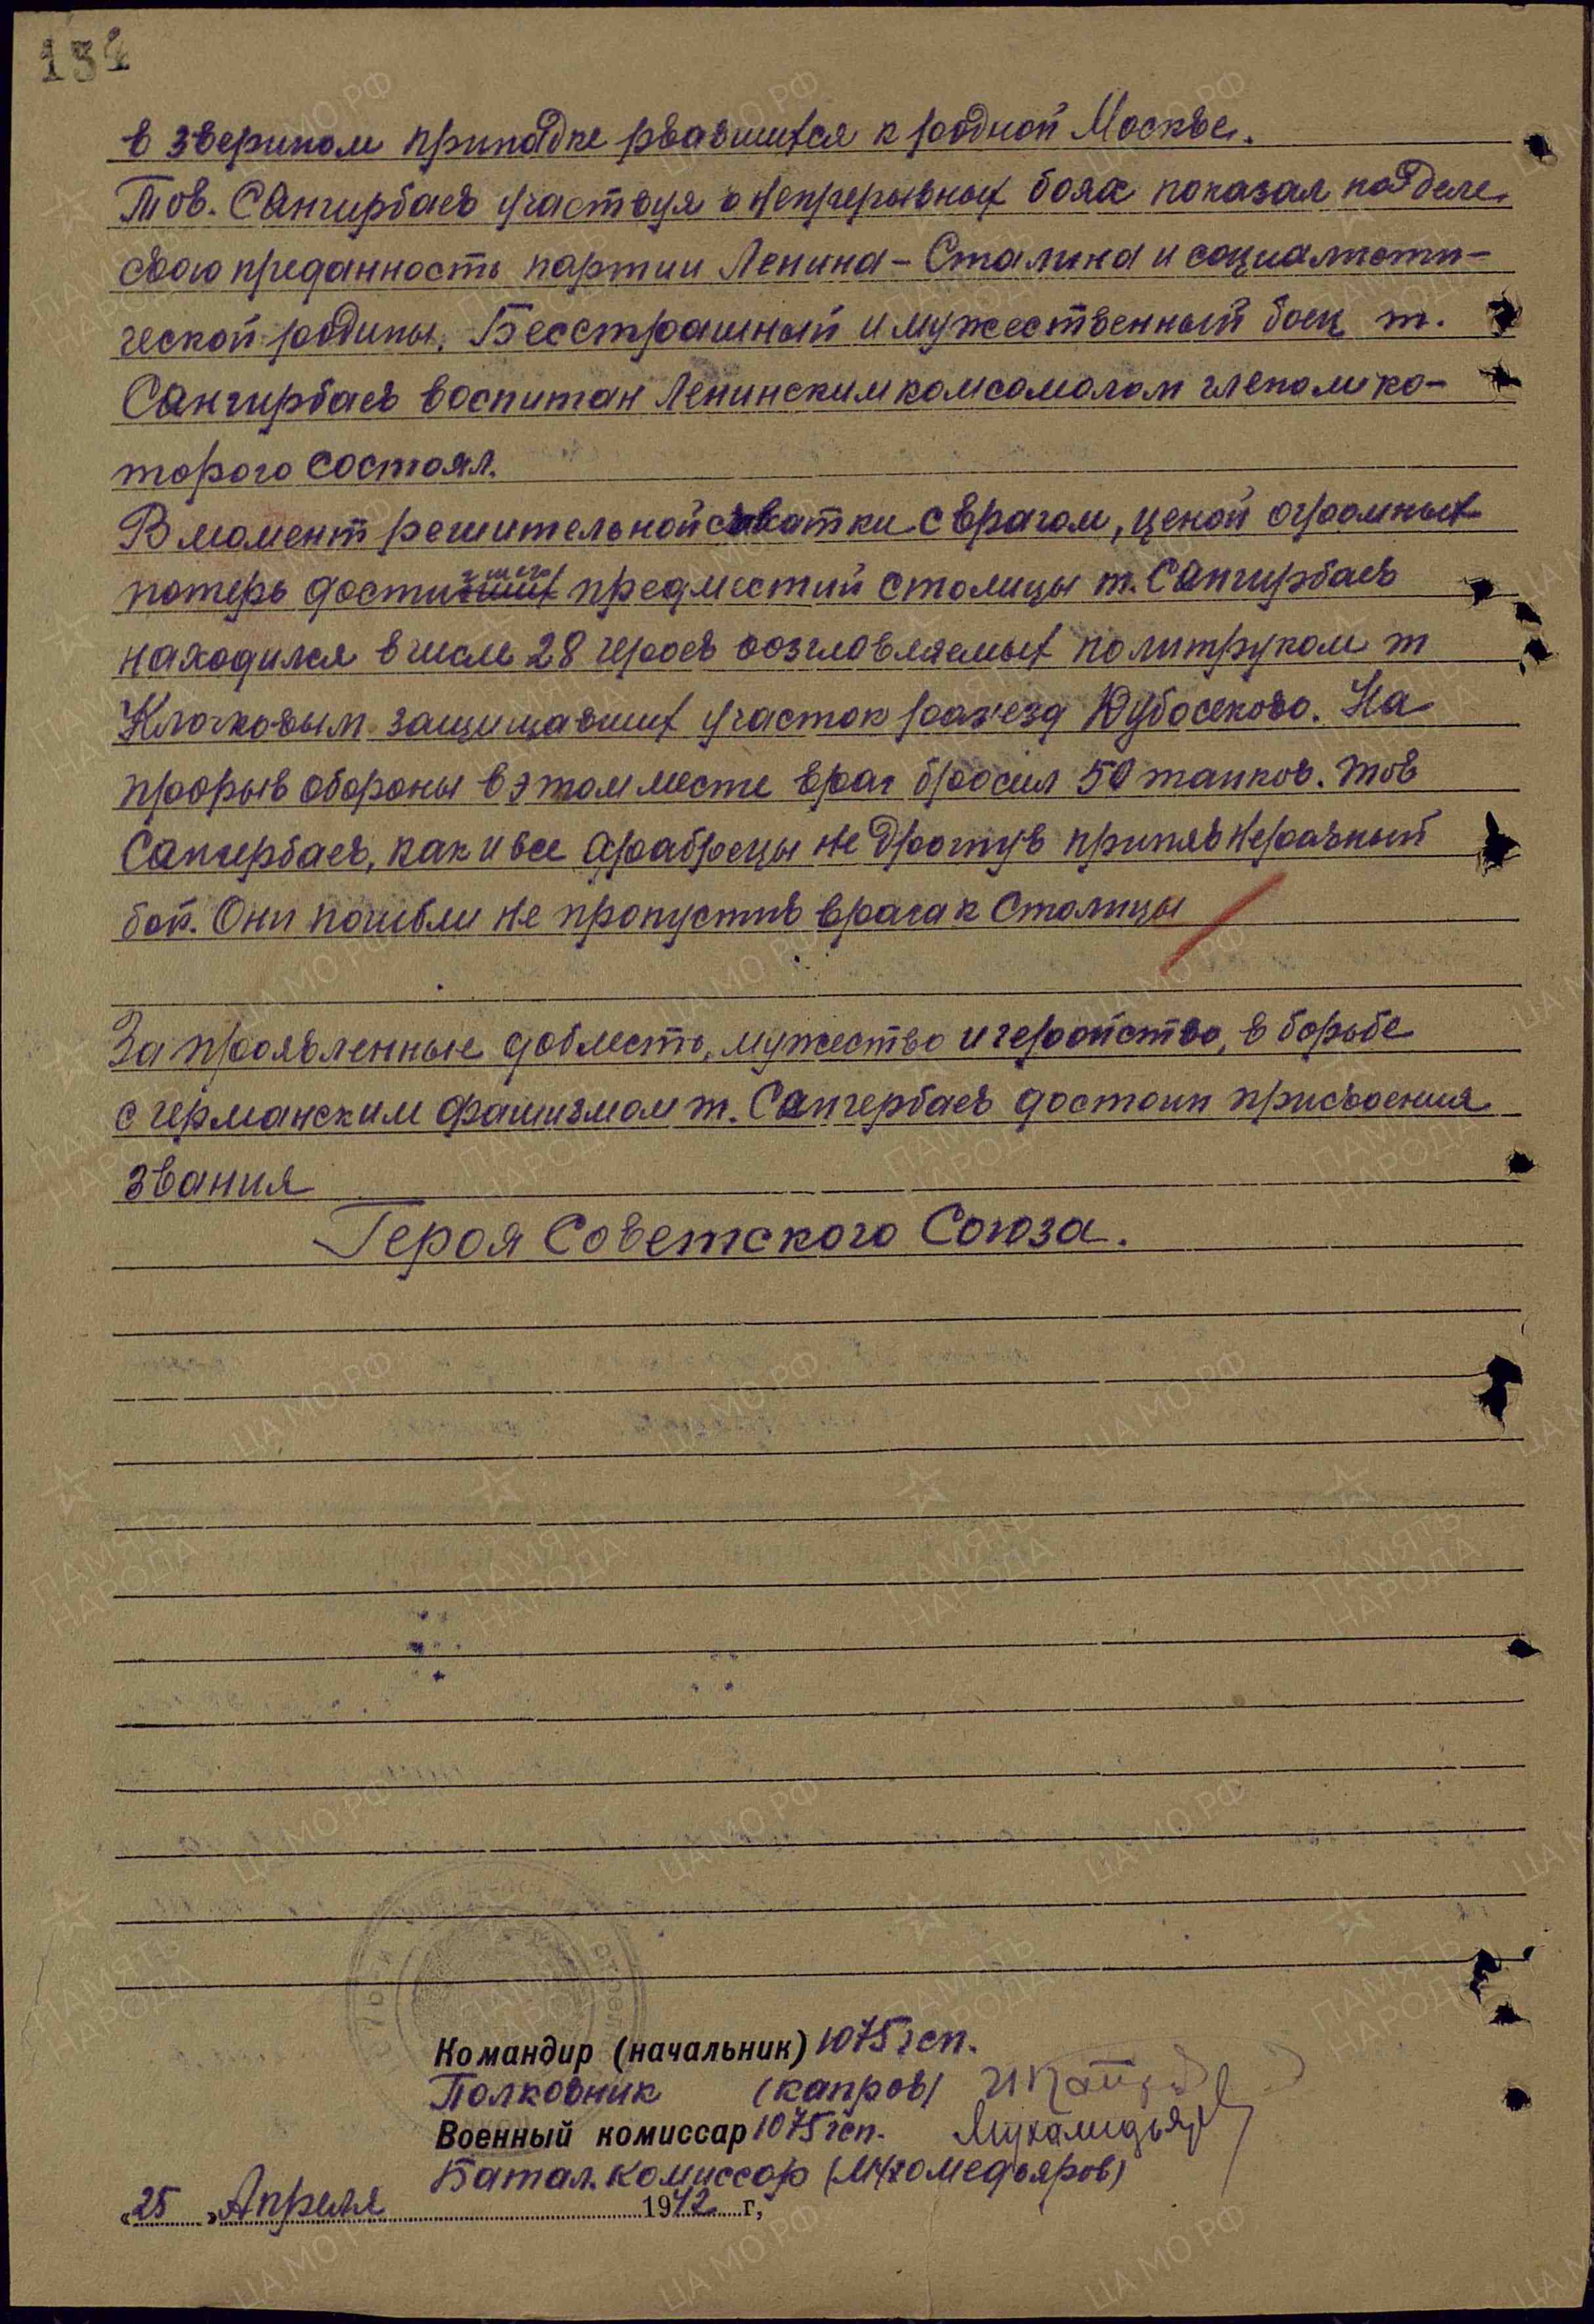 134
в зверином припадке рвавшихся к родной Москве.
Тов. Сангирбаев участвуя в непрерывных боях показал на деле
свою преданность партии Ленина – Сталина и социалисти-
ческой родины. Бесстрашный и мужественный боец т.
Сангирбаев воспитан Ленинским комсомолом членом ко-
торого состоял.
В момент решительной схватки с врагом, ценой огромных
потерь достигшего предместий столицы т. Сангирбаев
находился в числе 28 героев возглавляемых политруком т
Клочковым защищавших участок раз'езд Дубосеково. На
прорыв обороны в этом месте враг бросил 50 танков. тов
Сангербаев, как и все храбрецы не дрогнув принял неравный
бой. Они погибли не пропустив врага к Столицы
За проявленные доблесть, мужество и геройство, в борьбе
с германским фашизмом т. Сангербаев достоин присвоения
звания
Героя Советского Союза.
Командир (начальник) 1075 гсп.
Полковник (капров)
Военный комиссар 1075 гсп. Мухамедьяров
Батал. комиссар (Мухомедьяров)
«25» Апреля 1942 г,
ПАМЯТЬ НАРОДА
ЦА МО РФ